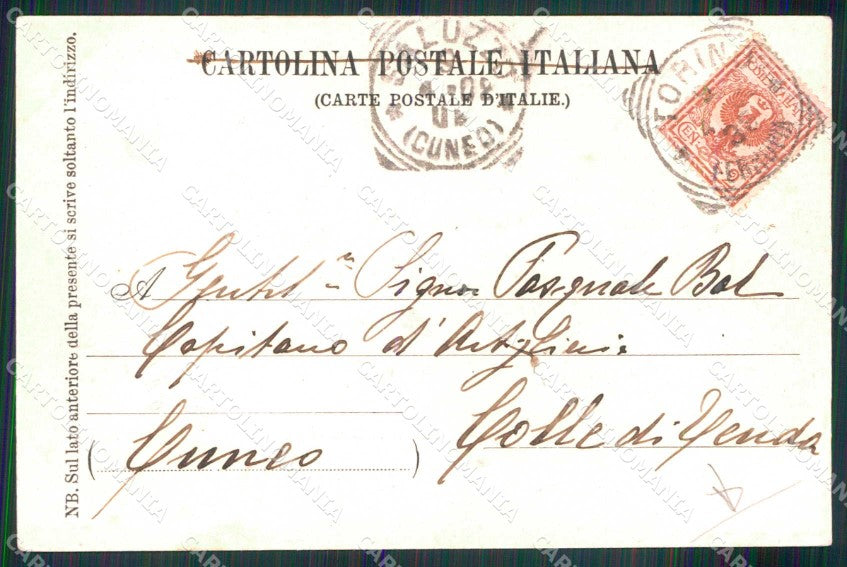 CARTOLINA POSTALE ITALIANA
(CARTE POSTALE D'ITALIE.)
SALUZZO
(CUNEO)
TORINO
A Gentil.mo Signor Pasquale Bal
Capitano d'Artiglieria
Colle di Tenda
(Cuneo)
NB. Sul lato anteriore della presente si scrive soltanto l'indirizzo.
CARTOLINOMANIA